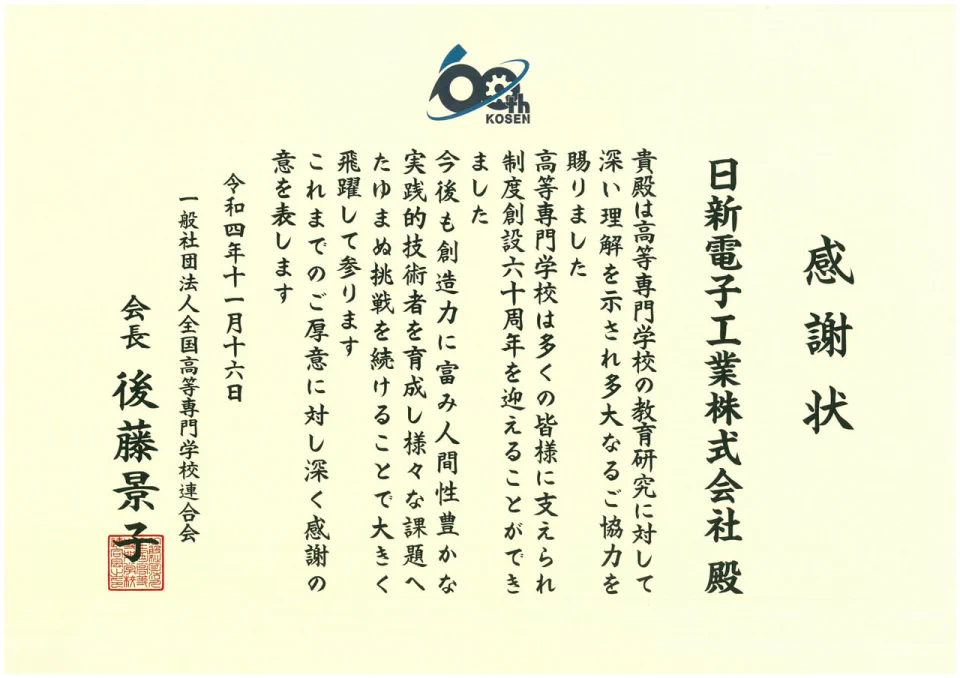 60th
KOSEN
感謝状
日新電子工業株式会社 殿
貴殿は高等専門学校の教育研究に対して
深い理解を示され多大なるご協力を
賜りました
高等専門学校は多くの皆様に支えられ
制度創設六十周年を迎えることができ
ました
今後も創造力に富み人間性豊かな
実践的技術者を育成し様々な課題へ
たゆまぬ挑戦を続けることで大きく
飛躍して参ります
これまでのご厚意に対し深く感謝の
意を表します
令和四年十一月十六日
一般社団法人全国高等専門学校連合会
会長 後藤景子